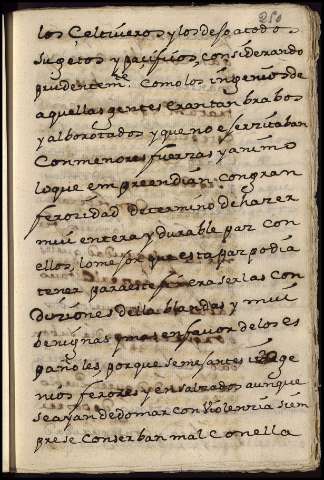 250
los Çeltiueros y los despa todo
sugetos y paçifiios, considerando
prudentemte. Como los ingenios de
aquellas gentes eran tan brabos
y alborotados y que no eserçitaban
Con menores fuerzas y animo
lo que emprendian, con gran
feroçidad determino de hazer
mui entera y durable paz con
ellos, lo mejor que esta paz podia
tener para este fin era ser las con
Diziones della blandas y mui
benignas y mas en favor de los es
pañoles, porque semejantes inge
nios feroçes y ensalzados aunque
se ayan de domar con violenzia siem
pre se Conserban mal con ella